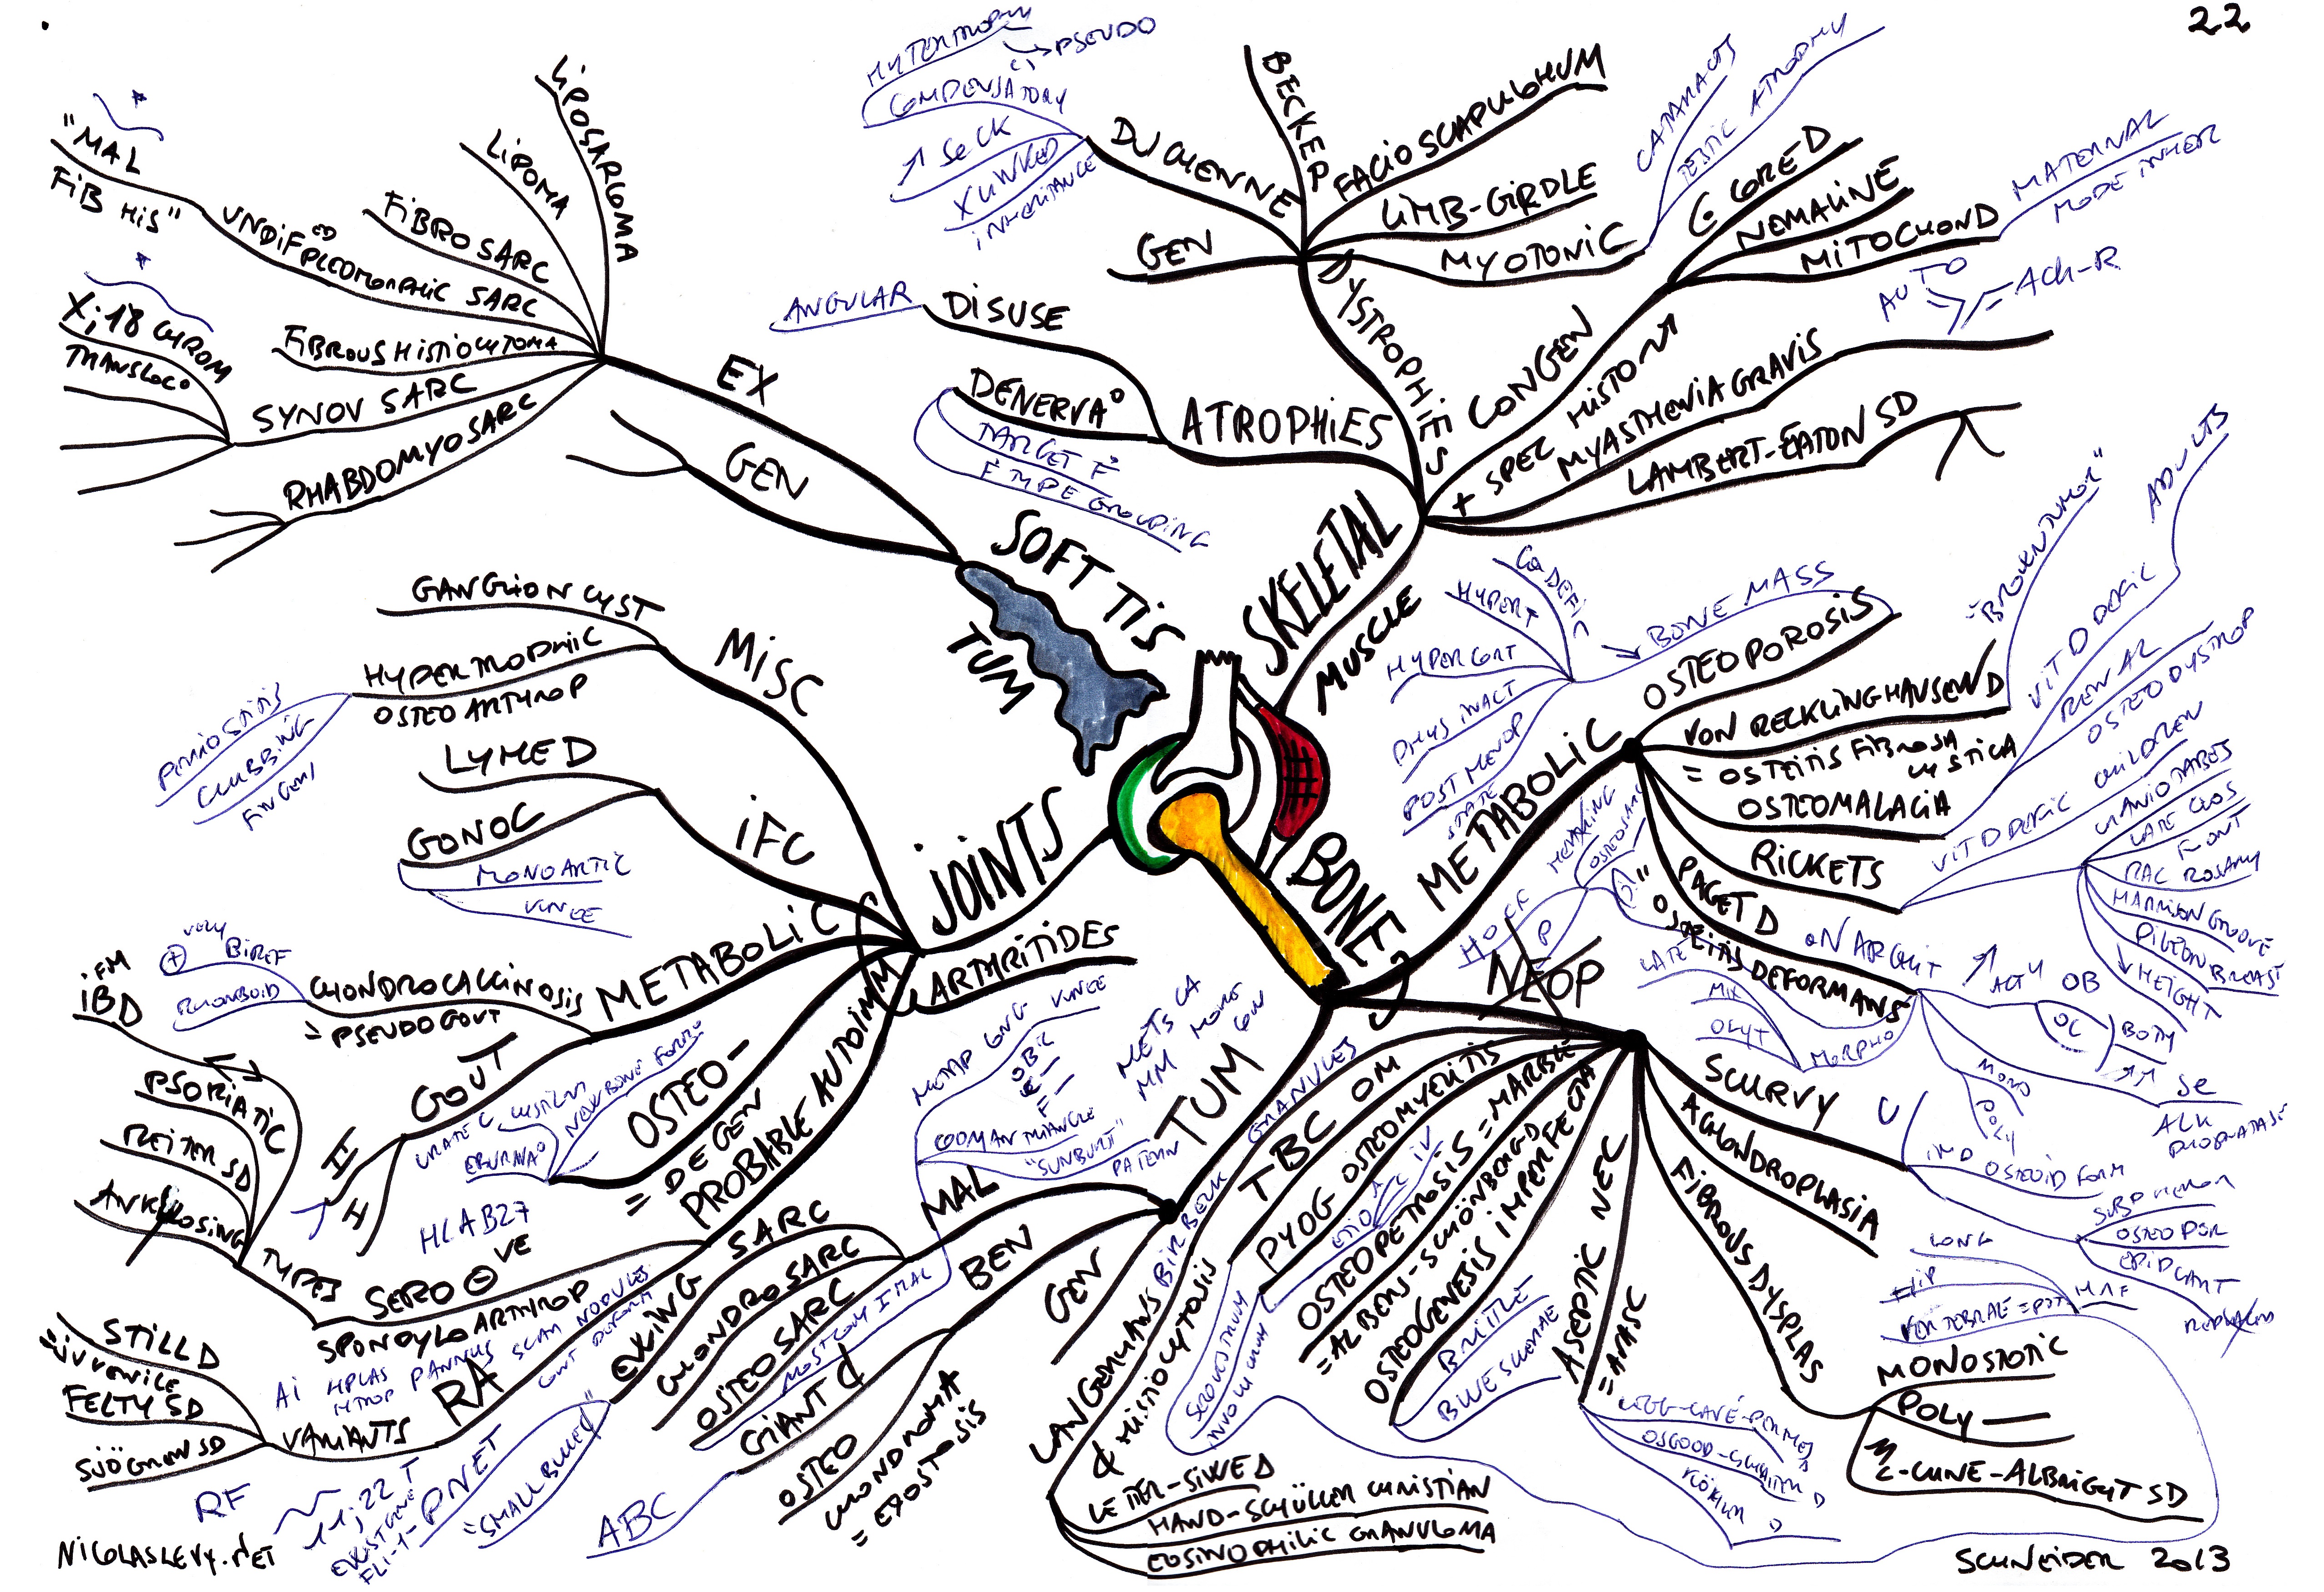 22
"MAL
FiB HiS"
UNDiF ED PLEOMORPHiC SARC
FiBROSARC
LiPOMA
LiPOSARCOMA
X;18 CHROM
TRANSLOC°
FiBROUS HiSTiOCYTOMA
SYNOV SARC
RHABDOMYOSARC
EX
GEN
SOFT TiS
TUM
PSEUDO
COMPENSATORY
↗ Se CK
X LiNKED
iNHERiTANCE
DUCHENNE
BECKER
FACiOSCAPULOHUM
LiMB-GiRDLE
MYOTONiC
CATARACTS
TESTiC ATROPHY
GEN
DYSTROPHiES
C CORE D
NEMALiNE
MiTOCHOND
MATERNAL
MODE iNHER
CONGEN
+ SPEC HiSTON
AUTO
ACh-R
MYASTHENiA GRAViS
LAMBERT-EATON SD
ANGULAR
DiSUSE
DENERVA°
TARGET F
F TYPE GROUPiNG
ATROPHiES
SKELETAL
MUSCLE
GANGLiON CYST
HYPERTROPHiC
OSTEOARTHROP
PERiOSTiTiS
CLUBBiNG
FiNGERS
MiSC
LYME D
GONOC
MONOARTiC
KNEE
iFC
JOiNTS
METABOLiC
VERY
BiREF
RHOMBOiD
CHONDROCALCiNOSiS
= PSEUDOGOUT
GOUT
URATE C
ARTHRiTiDES
OSTEO-
= DEGEN
EBURNA°
NEW BONE FORM
PROBABLE AUTOiMM
iFM
iBD
PSORiATiC
REiTER SD
ANKYLOSiNG
TYPES
HLA B27
SERO ⊖ VE
SPONDYLOARTHROP
RA
PANNUS
NODULES
VARiANTS
STiLL D
JUVENiLE
FELTY SD
SJÖGREN SD
RF
NiCOLASLEVY.NET
11;22 T
FLi-1
PNET
"SMALL BLUE
BONE
METABOLiC
Ca DEFiC
HYPERT
HYPERCORT
PHYS iNACT
POSTMENOP
STATE
↘ BONE MASS
OSTEOPOROSiS
VON RECKLiNGHAUSEN D
= OSTEiTiS FiBROSA
CYSTiCA
= BROWN TUMOR"
OSTEOMALACiA
ViT D DEFiC
ADULTS
RENAL
OSTEODYSTROP
RiCKETS
ViT D DEFiC CHiLDREN
CRANiOTABES
LATE CLOS
FONT
RAC ROSARY
HARRiSON GROOVE
PiGEON BREAST
↓ HEiGHT
PAGET D
"OSTEiTiS DEFORMANS"
OSTEOSARC
LATE
MiX
OLYT
MORPHO
MONO
POLY
↗ ACTY OB
OC
BODY
↗↗ Se
ALK
PHOSPHATASE
NEOP
SCURVY
C
OSTEOiD FORM
SUBP HEMOR
OSTEOPOR
ACHONDROPLASiA
FiBROUS DYSPLAS
MONOSTOTiC
POLY —
MC-CUNE-ALBRiGHT SD
LONG
HiP
VERTEBRAE = POTT
ASEPTiC NEC
= AVASC
LEGG-CAVÉ-PERTHES D
OSGOOD-SCHLATTER D
KÖHLER D
OSTEOGENESiS iMPERFECTA
BRiTTLE
BLUE SCLERAE
OSTEOPETROSiS = MARBLE
= ALBERS-SCHÖNBERG D
PYOG OSTEOMYELiTiS
SEQUESTRUM
iNVOLUCRUM
TBC OM
TUM
METS CA
MM MORE
METAP LONG KNEE
CODMAN TRiANGLE
"SUNBURST" PATERN
MAL
EWiNG SARC
CHONDROSARC
OSTEOSARC
MOST COM 1 MAL
BEN
GiANT C
ABC
OSTEO
CHONDROMA
= EXOSTOSiS
GEN
LANGERHANS
C HiSTiOCYTOSiS
BiRBECK GRANULES
LETTER-SiWE D
HAND-SCHÜLLER CHRiSTiAN
EOSiNOPHiLiC GRANULOMA
SCHNEiDER 2013